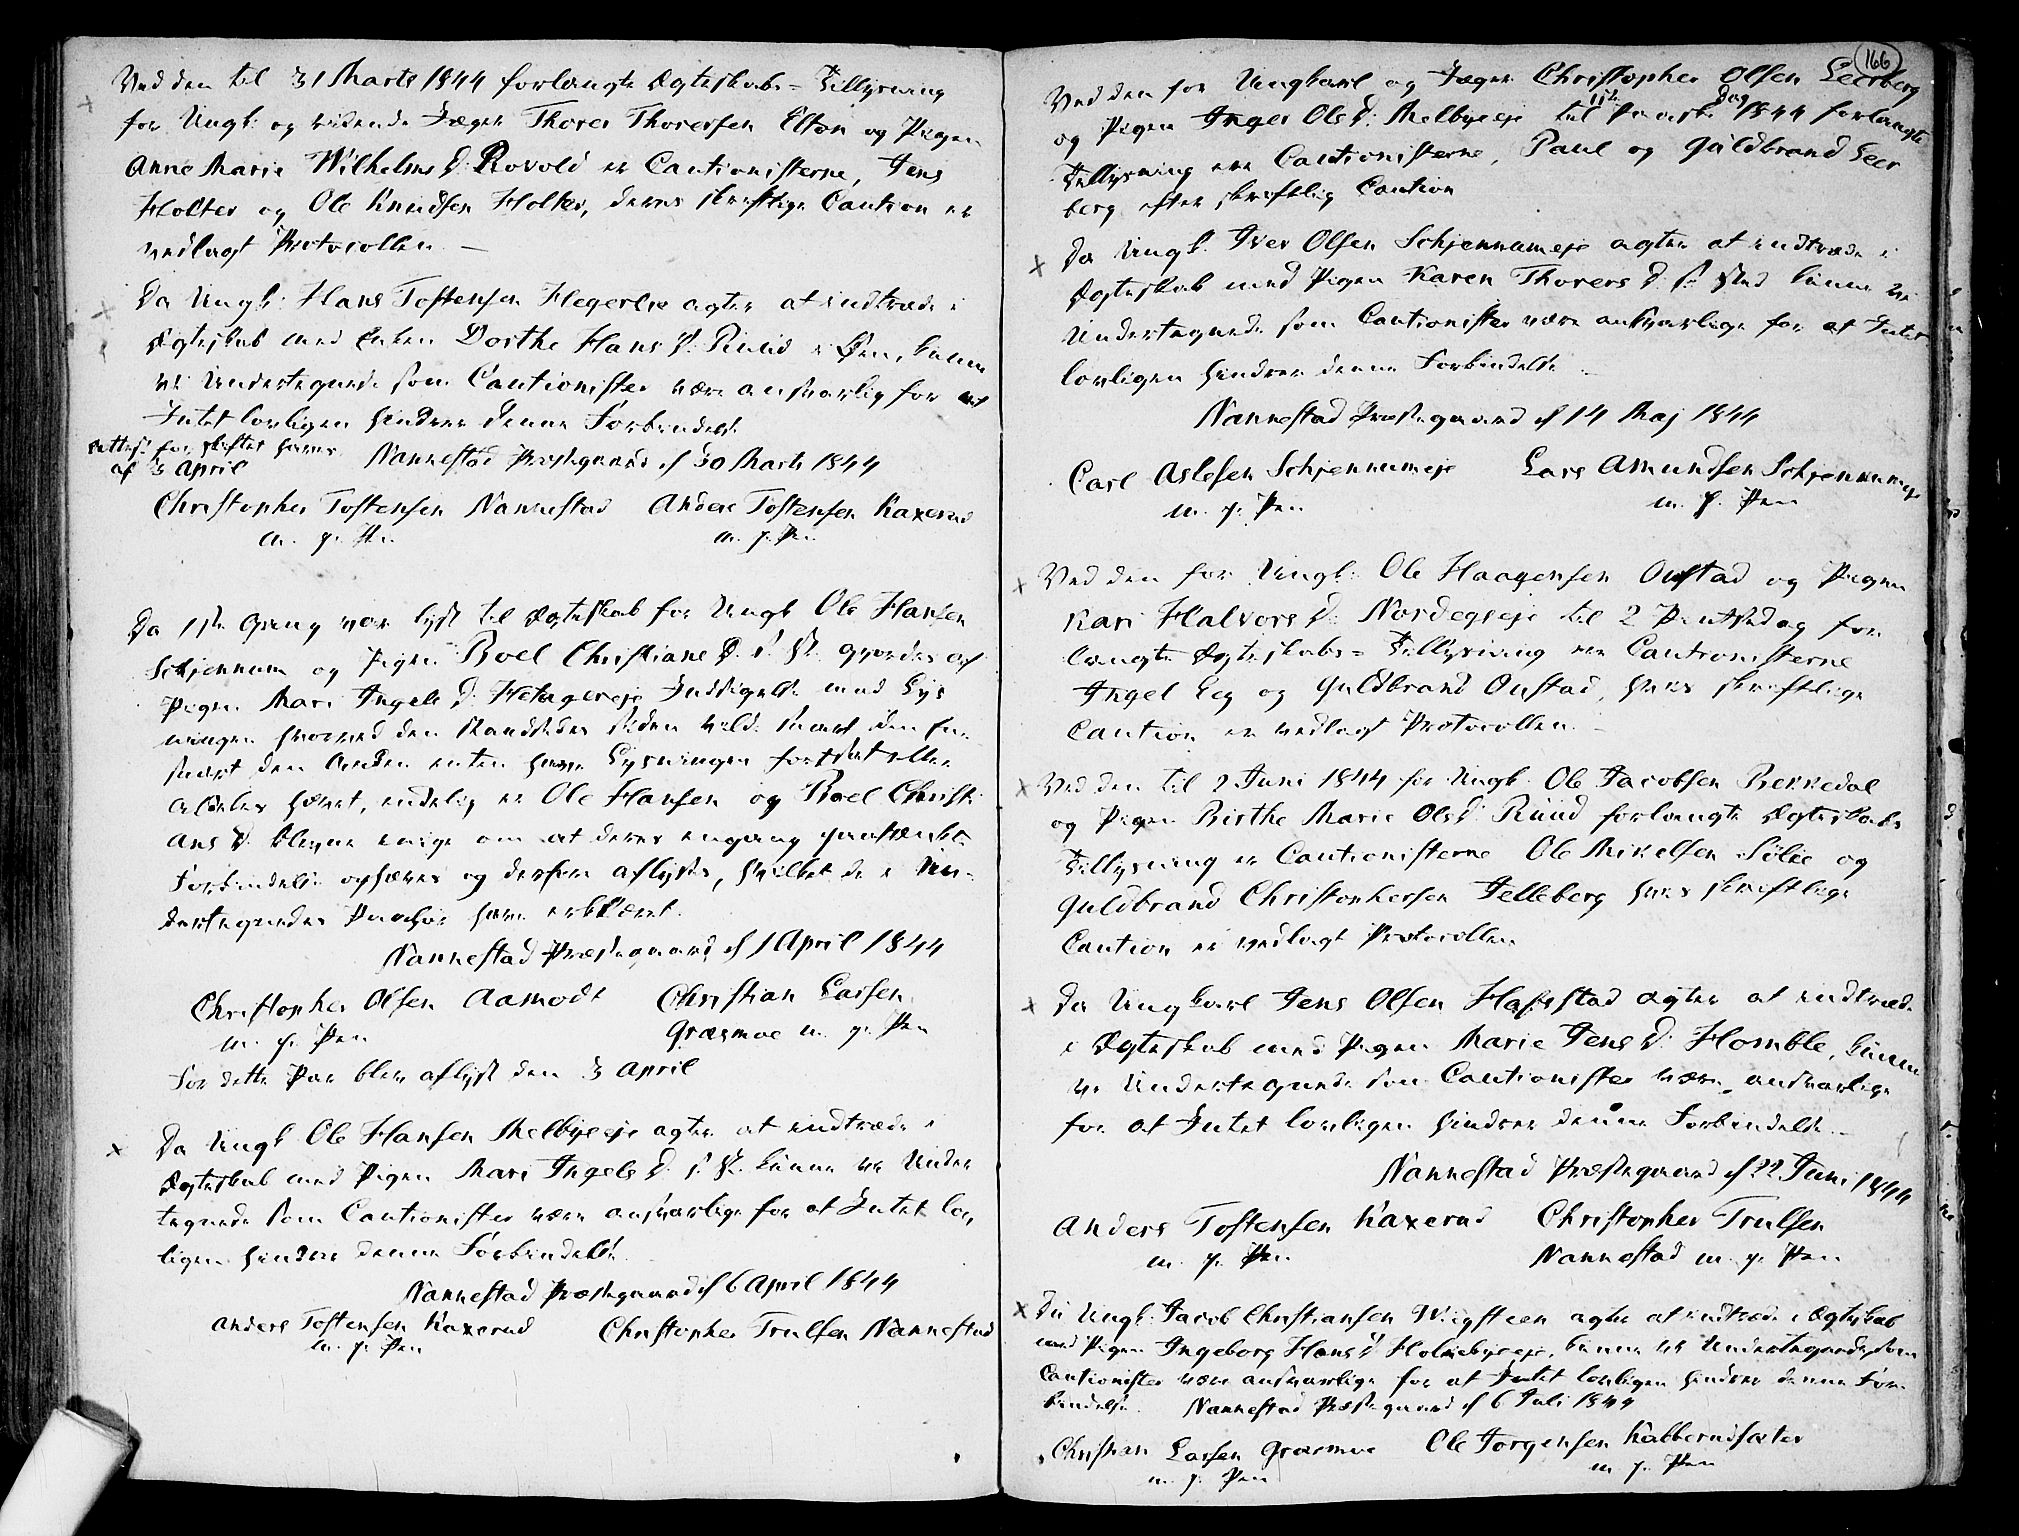 Ved den til 31 Marts 1844 forlangte Ægteskabs-Tillysning
for Ungk: og ridende Jæger Thorer Thorersen Elton og Pigen
Anne Marie Wilhelms D: Rovold er Cautionisterne, Jens
Holter og Ole Knudsen Holter, deres skriftlige Caution er
vedlagt Protocollen. —
Da Ungk: Hans Tostensen Hegerlie agter at indtræde i
Ægteskab med Enken Dorthe Hans D: Ruud i Øen, kunne
vi Undertegnede som Cautionister være ansvarlig for at
Intet lovligen hindrer denne Forbindelse
Attest for Skifter haves
af 3 April
Nannestad Præstegaard d 30 Marts 1844
Christopher Tostensen Nannestad Anders Tostensen Kaxerud
m. f. Pen m. f. Pen
Da 1ste Gang var lyst til Ægteskab for Ungk Ole Hansen
Schjennum og Pigen Boel Christians D. s. St. gjordes af
Pigen Mari Ingels D. Helagereje Indsigelse mod Lys
ningen hvorved den standsedes siden vilde snart den En
snart den Anden enten have Lysningen fortsat eller
aldeles hævet, endelig er Ole Hansen og Boel Christi
ans D. blevne enige om at deres engang paatænkte
Forbindelse ophæves og derfor aflyses, hvilket de i Un-
dertegnedes Paahør have erklæret.
Nannestad Præstegaard d 1 April 1844
Christopher Olsen Aamodt Christian Larsen
m. f. Pen Græsmoe m. f. Pen
For dette Par blev aflyst den 3 April
Da Ungk Ole Hansen Melbyeeje agter at indtræde i
Ægteskab med Pigen Mari Ingels D. s. St. kunne vi Under
tegnede som Cautionister være ansvarlige for at Intet lov
ligen hindrer denne Forbindelse
Nannestad Præstegaard d 6 April 1844
Anders Tostensen Kaxerud Christopher Trulsen Nannestad
m. f. Pen
166
Ved den for Ungkarl og Jæger Christopher Olsen Leerberg
og Pigen Inger Ols D: Melbyeeje til 1ste Paaske Dag 1844 forlangte
Tillysning ere Cautionisterne, Paul og Guldbrand Leer
berg efter skriftlig Caution
Da Ungk. Iver Olsen Schjennumeje agter at indtræde i
Ægteskab med Pigen Karen Thorers D. s. Sted kunne vi
Undertegnede som Cautionister være ansvarlige for at Intet
lovligen hindrer denne Forbindelse. —
Nannestad Præstegaard d 14 Maj 1844
Carl Aslesen Schjennumeje Lars Amundsen Schjennumeje
m. f. Pen m. f. Pen
Ved den for Ungk: Ole Haagensen Oustad og Pigen
Kari Halvors D: Nordegseje til 2 Pintsedag for
langte Ægteskabs-Tillysning ere Cautionisterne
Ingel Eeg og Guldbrand Oustad, hvis skriftlige
Caution er vedlagt Protocollen. —
Ved den til 2 Juni 1844 for Ungk. Ole Jacobsen Bekkedal
og Pigen Birthe Marie Ols D: Ruud forlangte Ægteskabs
Tillysning er Cautionisterne Ole Mikelsen Sølie og
Guldbrand Christophersen Telleberg hvis skriftlige
Caution er vedlagt Protocollen
Da Ungkarl Jens Olsen Hafstad agter at indtræde
i Ægteskab med Pigen Marie Jens D: Homble, kunne
vi Undertegnede som Cautionister være ansvarlige
for at Intet lovligen hindrer denne Forbindelse. —
Nannestad Præstegaard d 22 Juni 1844
Anders Tostensen Kaxerud Christopher Trulsen
m. f. Pen Nannestad m. f. Pen
Da Ungk. Jacob Christiansen Wiigsteen agter at indtræde i Ægteskab
med Pigen Ingeborg Hans D Holmebyeeje, kunne vi Undertegnede som
Cautionister være ansvarlige for at Intet lovligen hindrer denne For-
bindelse. Nannestad Præstegaard d 6 Juli 1844
Christian Larsen Græsmoe Ole Jorgensen Kabberudsæter
m. f. Pen m. f. Pen